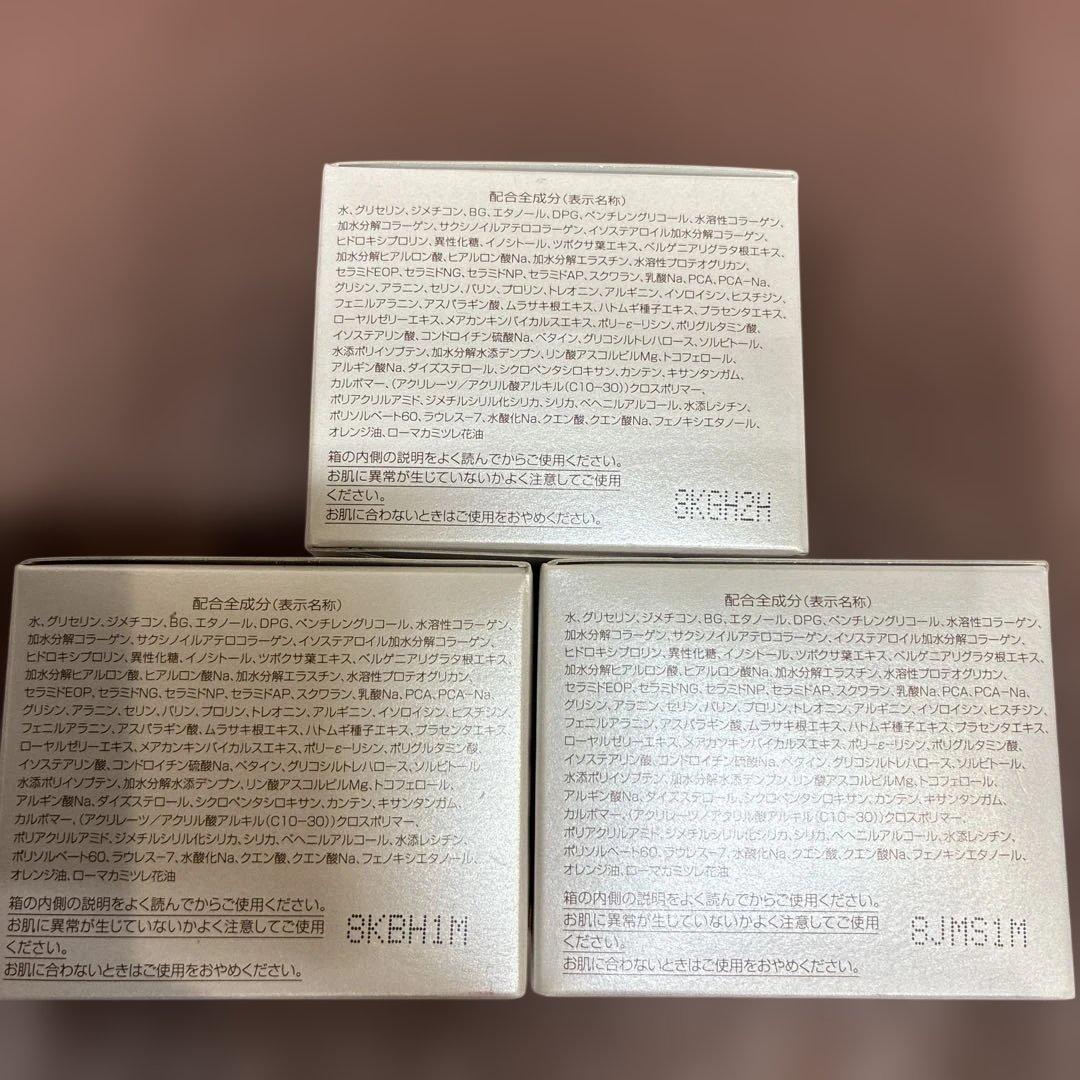 配合全成分(表示名称)
水、グリセリン、ジメチコン、BG、エタノール、DPG、ペンチレングリコール、水溶性コラーゲン、
加水分解コラーゲン、サクシノイルアテロコラーゲン、イソステアロイル加水分解コラーゲン、
ヒドロキシプロリン、異性化糖、イノシトール、ツボクサ葉エキス、ベルゲニアリグラタ根エキス、
加水分解ヒアルロン酸、ヒアルロン酸Na、加水分解エラスチン、水溶性プロテオグリカン、
セラミドEOP、セラミドNG、セラミドNP、セラミドAP、スクワラン、乳酸Na、PCA、PCA-Na、
グリシン、アラニン、セリン、バリン、プロリン、トレオニン、アルギニン、イソロイシン、ヒスチジン、
フェニルアラニン、アスパラギン酸、ムラサキ根エキス、ハトムギ種子エキス、プラセンタエキス、
ローヤルゼリーエキス、メアカンキンバイカルスエキス、ポリ-ε-リシン、ポリグルタミン酸、
イソステアリン酸、コンドロイチン硫酸Na、ベタイン、グリコシルトレハロース、ソルビトール、
水添ポリイソブテン、加水分解水添デンプン、リン酸アスコルビルMg、トコフェロール、
アルギン酸Na、ダイズステロール、シクロペンタシロキサン、カンテン、キサンタンガム、
カルボマー、(アクリレーツ/アクリル酸アルキル(C10-30))クロスポリマー、
ポリアクリルアミド、ジメチルシリル化シリカ、シリカ、ベヘニルアルコール、水添レシチン、
ポリソルベート60、ラウレス-7、水酸化Na、クエン酸、クエン酸Na、フェノキシエタノール、
オレンジ油、ローマカミツレ花油
箱の内側の説明をよく読んでからご使用ください。
お肌に異常が生じていないかよく注意してご使用
ください。
お肌に合わないときはご使用をおやめください。
8KGH2H
配合全成分(表示名称)
水、グリセリン、ジメチコン、BG、エタノール、DPG、ペンチレングリコール、水溶性コラーゲン、
加水分解コラーゲン、サクシノイルアテロコラーゲン、イソステアロイル加水分解コラーゲン、
ヒドロキシプロリン、異性化糖、イノシトール、ツボクサ葉エキス、ベルゲニアリグラタ根エキス、
加水分解ヒアルロン酸、ヒアルロン酸Na、加水分解エラスチン、水溶性プロテオグリカン、
セラミドEOP、セラミドNG、セラミドNP、セラミドAP、スクワラン、乳酸Na、PCA、PCA-Na、
グリシン、アラニン、セリン、バリン、プロリン、トレオニン、アルギニン、イソロイシン、ヒスチジン、
フェニルアラニン、アスパラギン酸、ムラサキ根エキス、ハトムギ種子エキス、プラセンタエキス、
ローヤルゼリーエキス、メアカンキンバイカルスエキス、ポリ-ε-リシン、ポリグルタミン酸、
イソステアリン酸、コンドロイチン硫酸Na、ベタイン、グリコシルトレハロース、ソルビトール、
水添ポリイソブテン、加水分解水添デンプン、リン酸アスコルビルMg、トコフェロール、
アルギン酸Na、ダイズステロール、シクロペンタシロキサン、カンテン、キサンタンガム、
カルボマー、(アクリレーツ/アクリル酸アルキル(C10-30))クロスポリマー、
ポリアクリルアミド、ジメチルシリル化シリカ、シリカ、ベヘニルアルコール、水添レシチン、
ポリソルベート60、ラウレス-7、水酸化Na、クエン酸、クエン酸Na、フェノキシエタノール、
オレンジ油、ローマカミツレ花油
箱の内側の説明をよく読んでからご使用ください。
お肌に異常が生じていないかよく注意してご使用
ください。
お肌に合わないときはご使用をおやめください。
8KBH1M
配合全成分(表示名称)
水、グリセリン、ジメチコン、BG、エタノール、DPG、ペンチレングリコール、水溶性コラーゲン、
加水分解コラーゲン、サクシノイルアテロコラーゲン、イソステアロイル加水分解コラーゲン、
ヒドロキシプロリン、異性化糖、イノシトール、ツボクサ葉エキス、ベルゲニアリグラタ根エキス、
加水分解ヒアルロン酸、ヒアルロン酸Na、加水分解エラスチン、水溶性プロテオグリカン、
セラミドEOP、セラミドNG、セラミドNP、セラミドAP、スクワラン、乳酸Na、PCA、PCA-Na、
グリシン、アラニン、セリン、バリン、プロリン、トレオニン、アルギニン、イソロイシン、ヒスチジン、
フェニルアラニン、アスパラギン酸、ムラサキ根エキス、ハトムギ種子エキス、プラセンタエキス、
ローヤルゼリーエキス、メアカンキンバイカルスエキス、ポリ-ε-リシン、ポリグルタミン酸、
イソステアリン酸、コンドロイチン硫酸Na、ベタイン、グリコシルトレハロース、ソルビトール、
水添ポリイソブテン、加水分解水添デンプン、リン酸アスコルビルMg、トコフェロール、
アルギン酸Na、ダイズステロール、シクロペンタシロキサン、カンテン、キサンタンガム、
カルボマー、(アクリレーツ/アクリル酸アルキル(C10-30))クロスポリマー、
ポリアクリルアミド、ジメチルシリル化シリカ、シリカ、ベヘニルアルコール、水添レシチン、
ポリソルベート60、ラウレス-7、水酸化Na、クエン酸、クエン酸Na、フェノキシエタノール、
オレンジ油、ローマカミツレ花油
箱の内側の説明をよく読んでからご使用ください。
お肌に異常が生じていないかよく注意してご使用
ください。
お肌に合わないときはご使用をおやめください。
8JMS1M